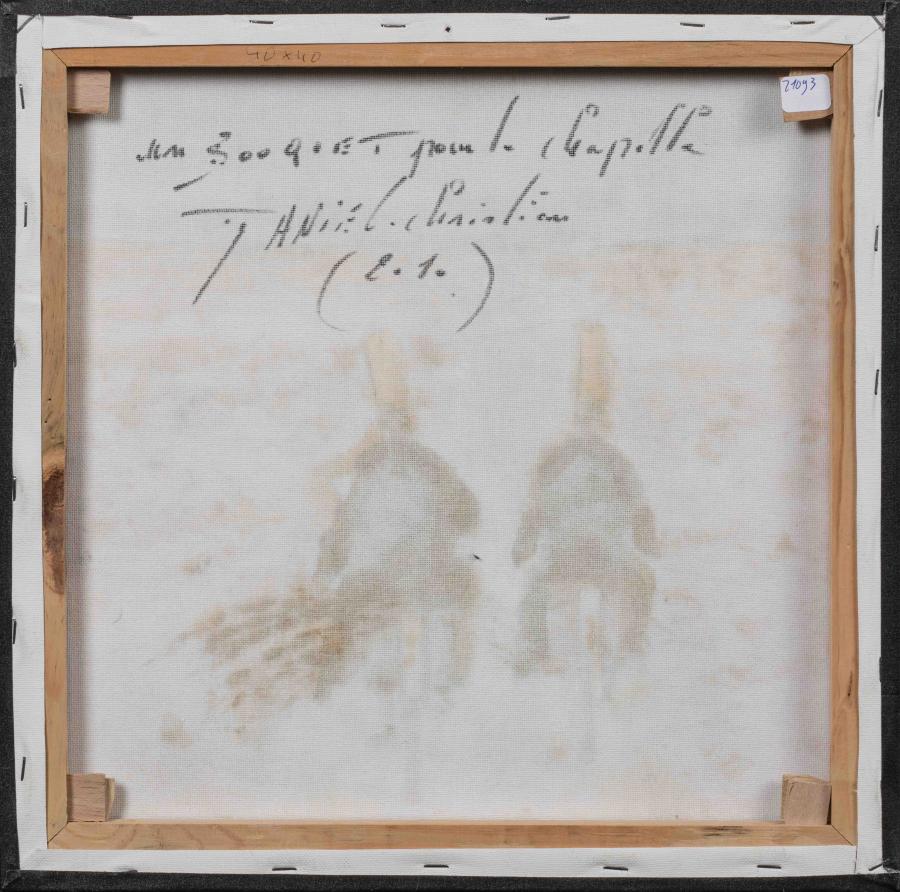 40x40
21093
un BOOQUET pour la chapelle
TANiEL. Christian
(E.1.)